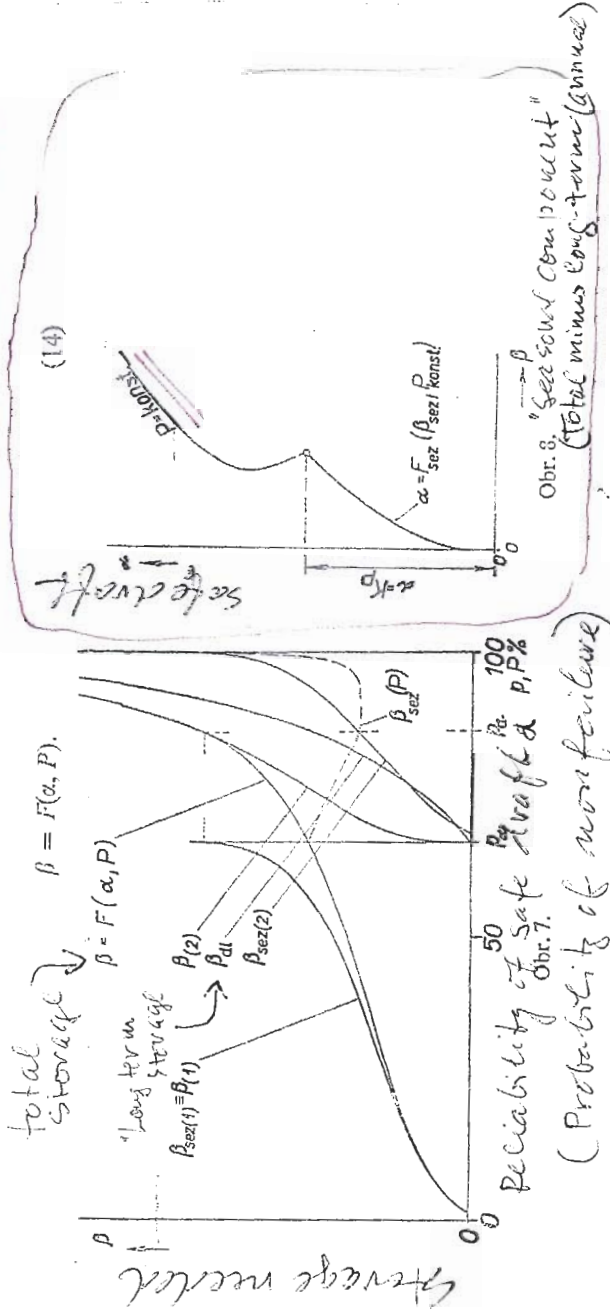 total
storage
β = F(α, P).
β = F(α, P)
"Long term
storage
βsez(1) ≡ β(1)
β(2)
βdl
βsez(2)
βsez(P)
β
Storage needed
0
0
50
Pα
Pα
100
p, P%
Reliability of safe draft α
Obr. 7.
(Probability of nonfailure)
(14)
P=konst
safe draft
α
α=Kp
α = Fsez (βsez, P konst.)
0
0
β
Obr. 8. "Seasonal component"
(Total minus long-term (annual)